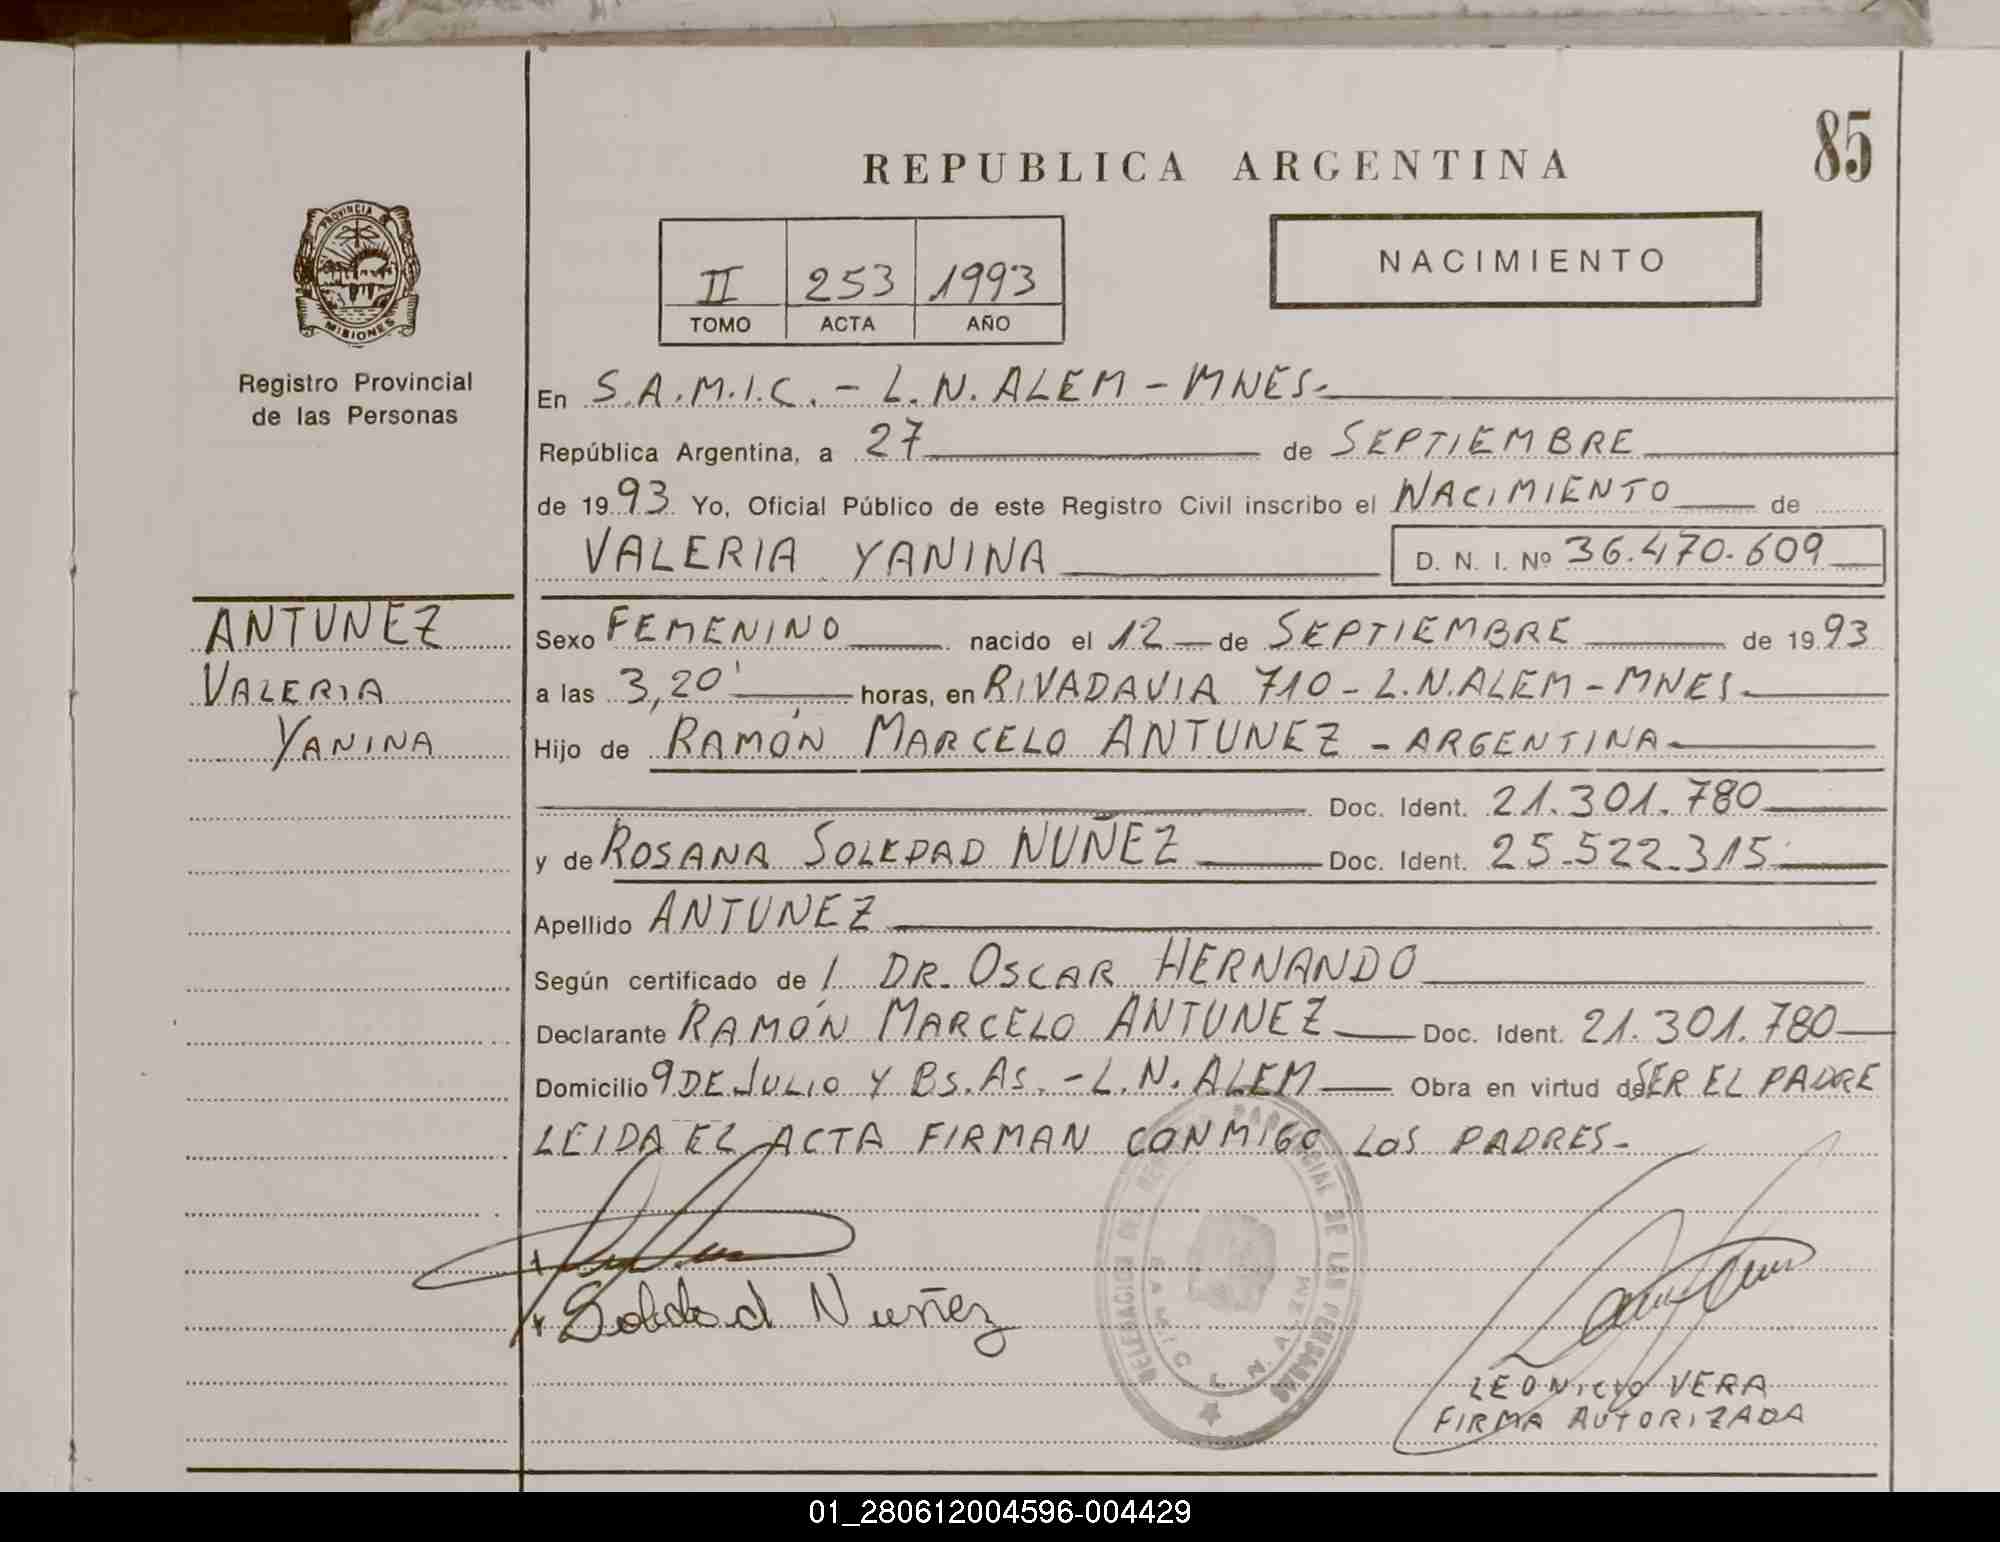 85
REPUBLICA ARGENTINA
PROVINCIA DE
MISIONES
Registro Provincial
de las Personas
II 253 1993
TOMO ACTA AÑO
NACIMIENTO
En S.A.M.I.C. - L.N. ALEM - MNES.
República Argentina, a 27 de SEPTIEMBRE
de 1993 Yo, Oficial Público de este Registro Civil inscribo el NACIMIENTO de
VALERIA YANINA D. N. I. Nº 36.470.609
ANTUNEZ
VALERIA
YANINA
Sexo FEMENINO nacido el 12 de SEPTIEMBRE de 1993
a las 3,20' horas, en RIVADAVIA 710 - L.N. ALEM - MNES.
Hijo de RAMÓN MARCELO ANTUNEZ - ARGENTINA
Doc. Ident. 21.301.780
y de ROSANA SOLEDAD NUÑEZ Doc. Ident. 25.522.315
Apellido ANTUNEZ
Según certificado de / DR. OSCAR HERNANDO
Declarante RAMÓN MARCELO ANTUNEZ Doc. Ident. 21.301.780
Domicilio 9 DE JULIO Y BS. AS. - L.N. ALEM Obra en virtud de SER EL PADRE
LEIDA EL ACTA FIRMAN CONMIGO LOS PADRES-
Soledad Nuñez
DELEGACION DEL REGISTRO PROVINCIAL DE LAS PERSONAS
SAMIC L. N. ALEM
LEONICIO VERA
FIRMA AUTORIZADA
01_280612004596-004429